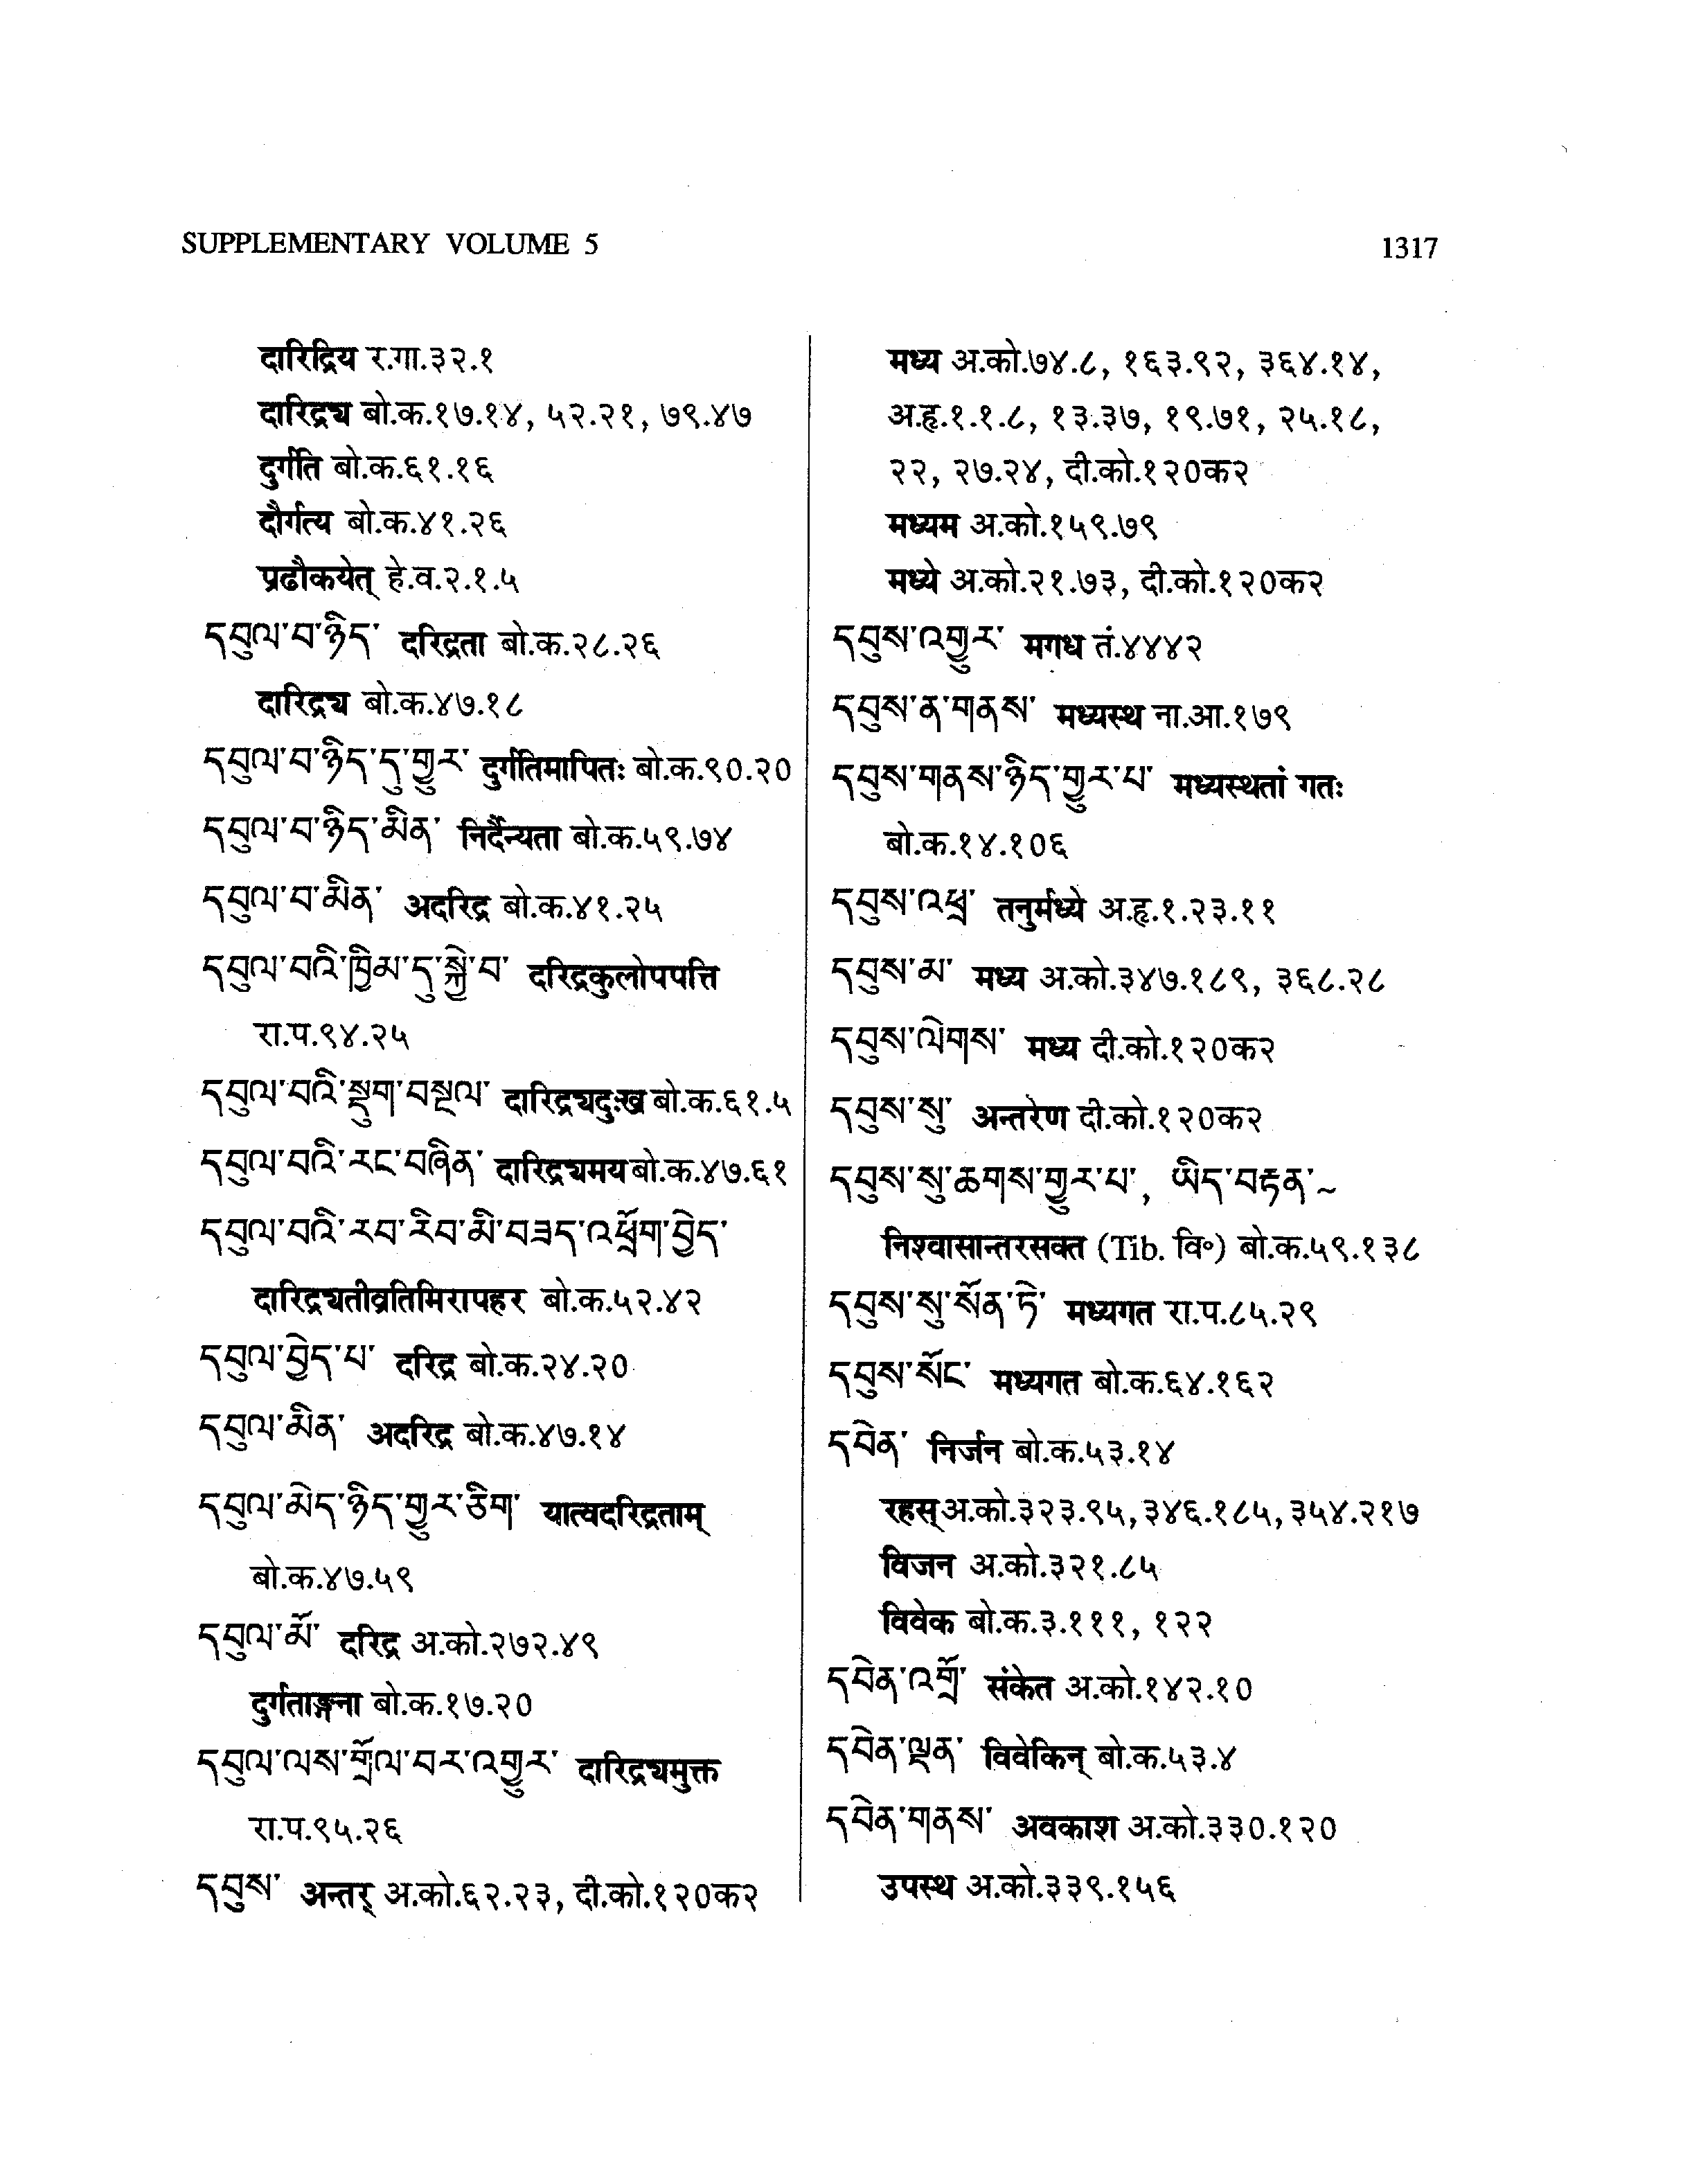 SUPPLEMENTARY VOLUME 5
1317
दारिद्रिय र.गा.३२.१
दारिद्र्य बो.क.१७.१४, ५२.२१, ७९.४७
दुर्गति बो.क.६१.१६
दौर्गत्य बो.क.४१.२६
प्रढौकयेत् हे.व.२.१.५
དབུལ་བ་ཉིད་ दरिद्रता बो.क.२८.२६
दारिद्र्य बो.क.४७.१८
དབུལ་བ་ཉིད་དུ་གྱུར་ दुर्गतिमापितः बो.क.९०.२०
དབུལ་བ་ཉིད་མིན་ निर्दैन्यता बो.क.५९.७४
དབུལ་བ་མིན་ अदरिद्र बो.क.४१.२५
དབུལ་བའི་ཁྱིམ་དུ་སྐྱེ་བ་ दरिद्रकुलोपपत्ति
रा.प.९४.२५
དབུལ་བའི་སྡུག་བསྔལ་ दारिद्र्यदुःख बो.क.६१.५
དབུལ་བའི་རང་བཞིན་ दारिद्र्यमय बो.क.४७.६१
དབུལ་བའི་རབ་རིབ་མི་བཟད་འཕྲོག་བྱེད་
दारिद्र्यतीव्रतिमिरापहर बो.क.५२.४२
དབུལ་བྱེད་པ་ दरिद्र बो.क.२४.२०
དབུལ་མིན་ अदरिद्र बो.क.४७.१४
དབུལ་མེད་ཉིད་གྱུར་ཅིག་ यात्वदरिद्रताम्
बो.क.४७.५९
དབུལ་མོ་ दरिद्र अ.को.२७२.४९
दुर्गताङ्गना बो.क.१७.२०
དབུལ་ལས་གྲོལ་བར་འགྱུར་ दारिद्र्यमुक्त
रा.प.९५.२६
དབུས་ अन्तर् अ.को.६२.२३, दी.को.१२०क२
मध्य अ.को.७४.८, १६३.९२, ३६४.१४,
अ.हृ.१.१.८, १३.३७, १९.७१, २५.१८,
२२, २७.२४, दी.को.१२०क२
मध्यम अ.को.१५९.७९
मध्ये अ.को.२१.७३, दी.को.१२०क२
དབུས་འགྱུར་ मगध तं.४४४२
དབུས་ན་གནས་ मध्यस्थ ना.आ.१७९
དབུས་གནས་ཉིད་གྱུར་པ་ मध्यस्थतां गतः
बो.क.१४.१०६
དབུས་འཕྲ་ तनुर्मध्ये अ.हृ.१.२३.११
དབུས་མ་ मध्य अ.को.३४७.१८९, ३६८.२८
དབུས་ལེགས་ मध्य दी.को.१२०क२
དབུས་སུ་ अन्तरेण दी.को.१२०क२
དབུས་སུ་ཆགས་གྱུར་པ་, ཡིད་བརྟན་~
निश्वासान्तरसक्त (Tib. वि०) बो.क.५९.१३८
དབུས་སུ་སོན་ཏེ་ मध्यगत रा.प.८५.२९
དབུས་སོང་ मध्यगत बो.क.६४.१६२
དབེན་ निर्जन बो.क.५३.१४
रहस् अ.को.३२३.९५, ३४६.१८५, ३५४.२१७
विजन अ.को.३२१.८५
विवेक बो.क.३.१११, १२२
དབེན་འགྲོ་ संकेत अ.को.१४२.१०
དབེན་ལྡན་ विवेकिन् बो.क.५३.४
དབེན་གནས་ अवकाश अ.को.३३०.१२०
उपस्थ अ.को.३३९.१५६